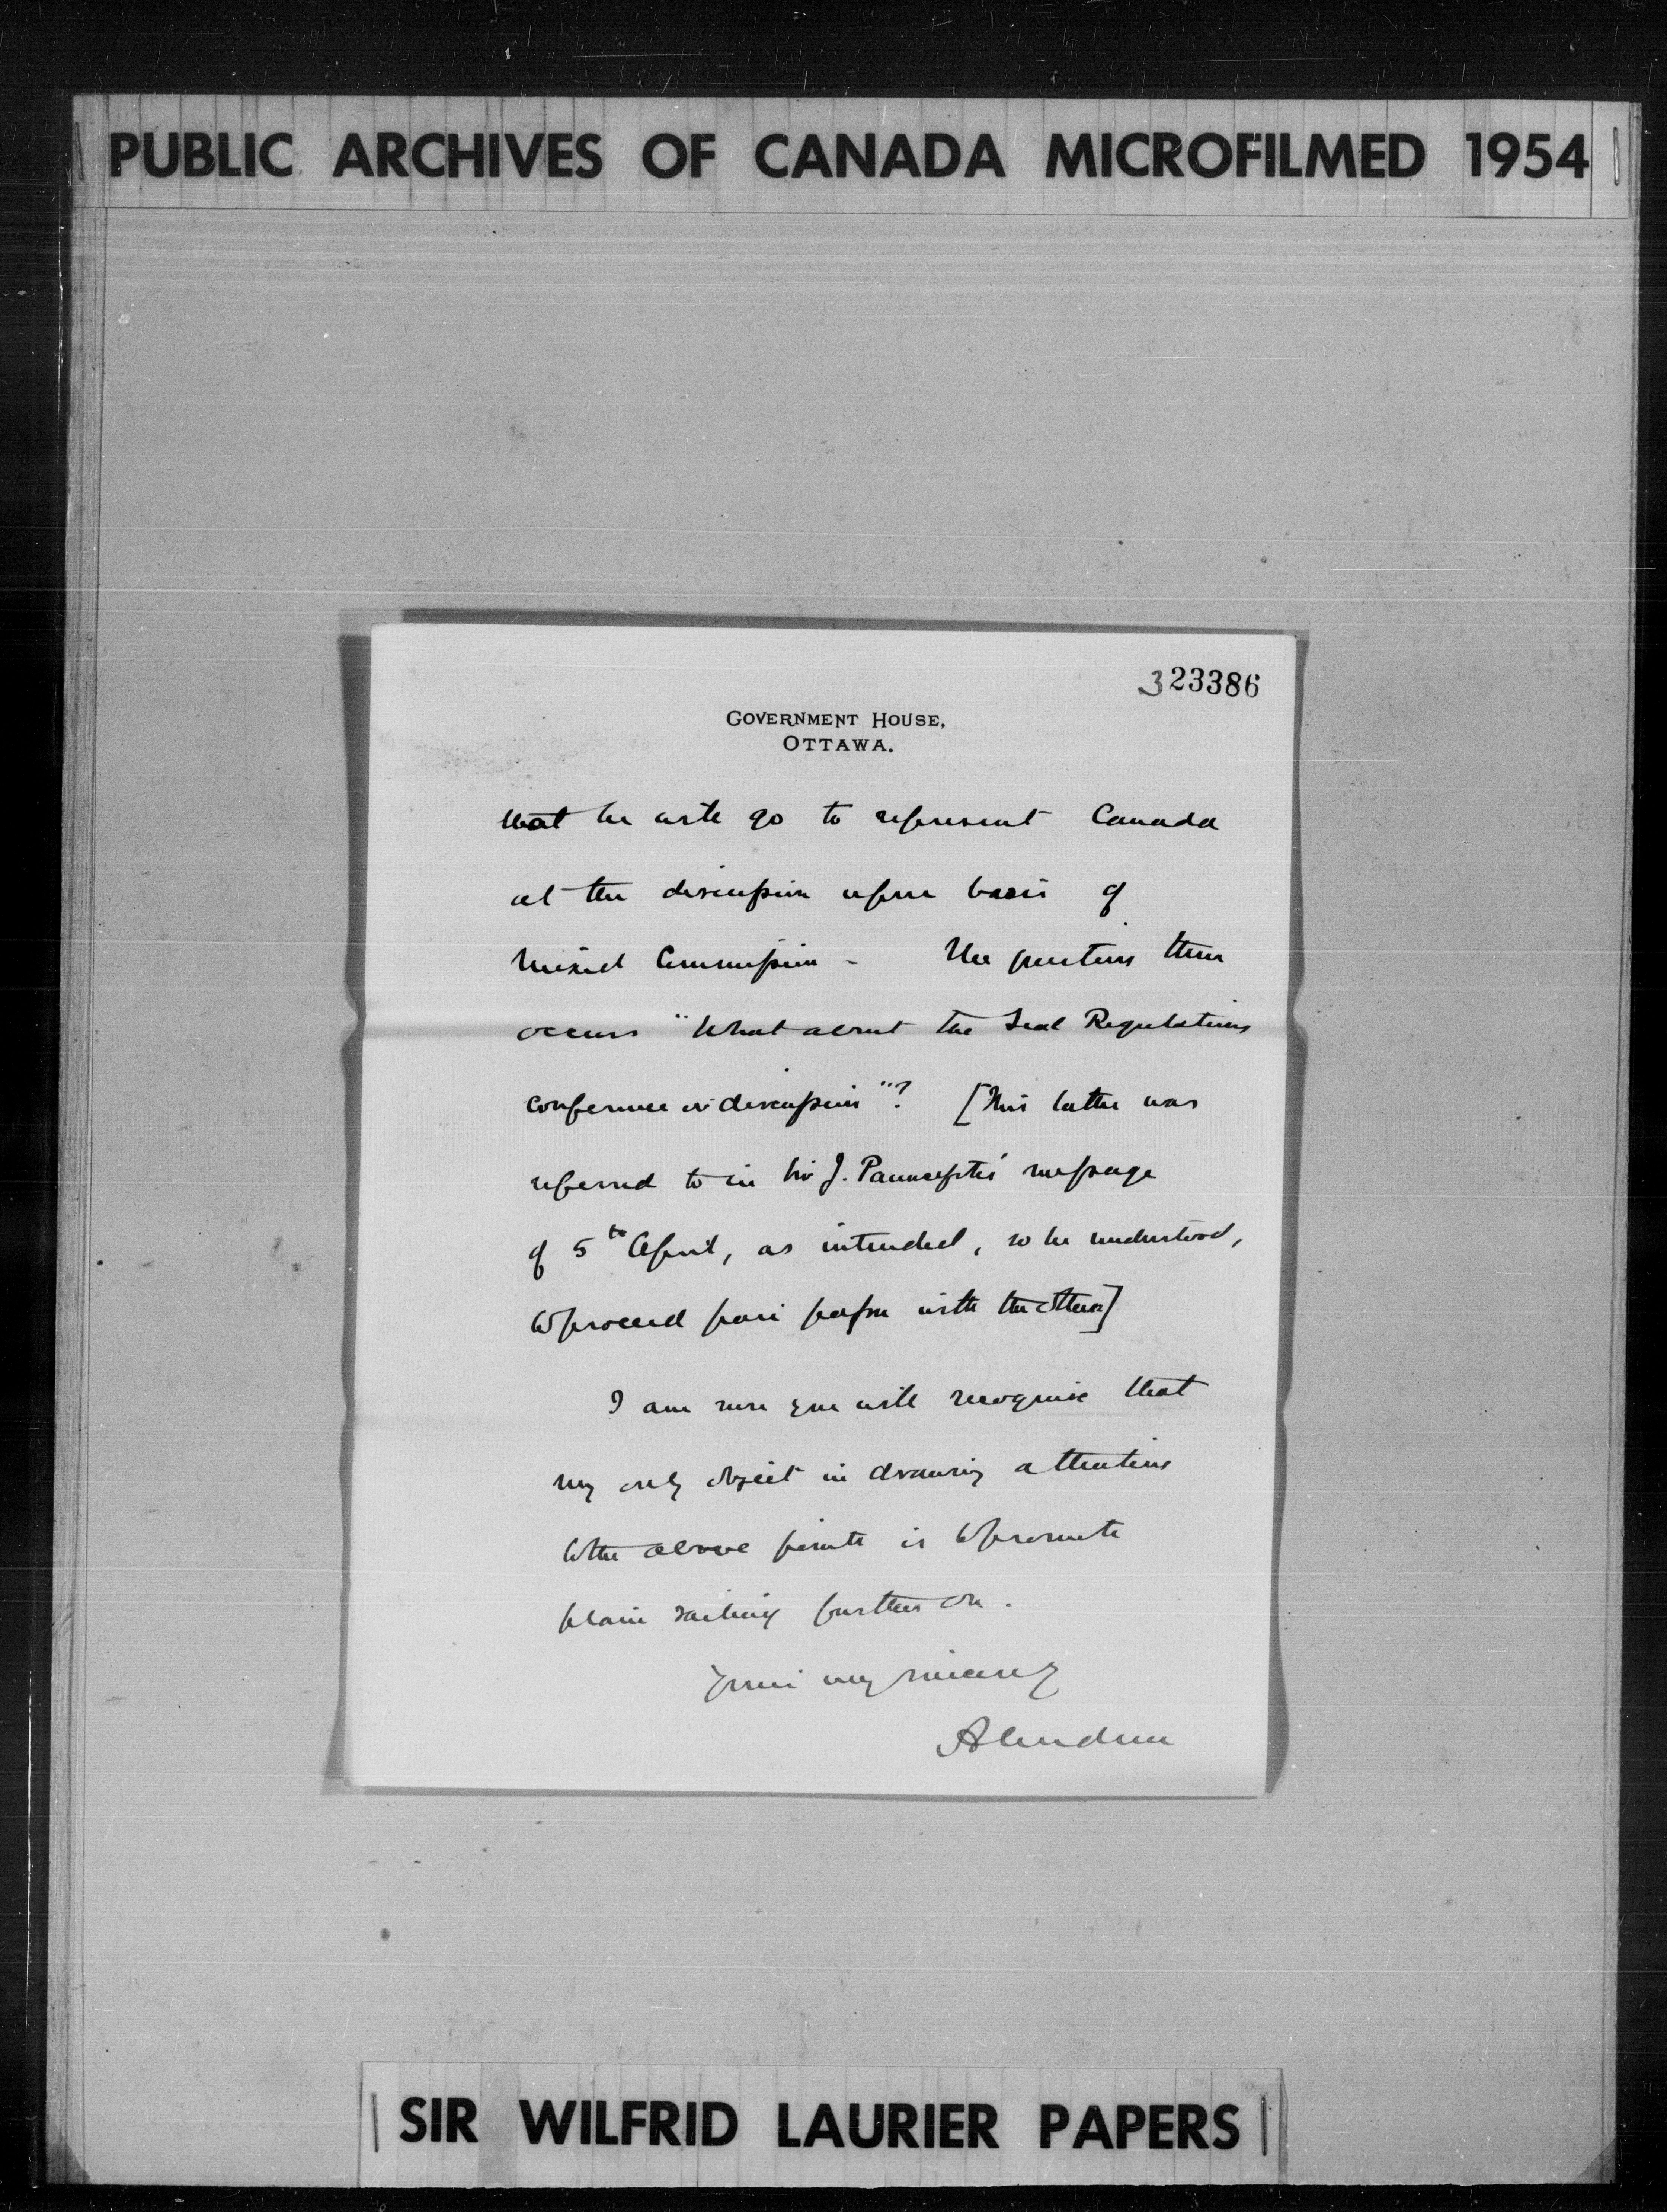 PUBLIC ARCHIVES OF CANADA MICROFILMED 1954
323386
GOVERNMENT HOUSE,
OTTAWA.
that he will go to represent Canada
at the discussion upon basis of
Mixed Commission - The question then
occurs "What about the Seal Regulations
conference or discussion"? [This latter was
referred to in Sir J. Pauncefote's message
of 5th April, as intended, so he understood,
to proceed pari passu with the other]
I am sure you will recognise that
my only object in drawing attention
to the above points is to promote
plain sailing further on.
Yours very sincerely
Aberdeen
SIR WILFRID LAURIER PAPERS